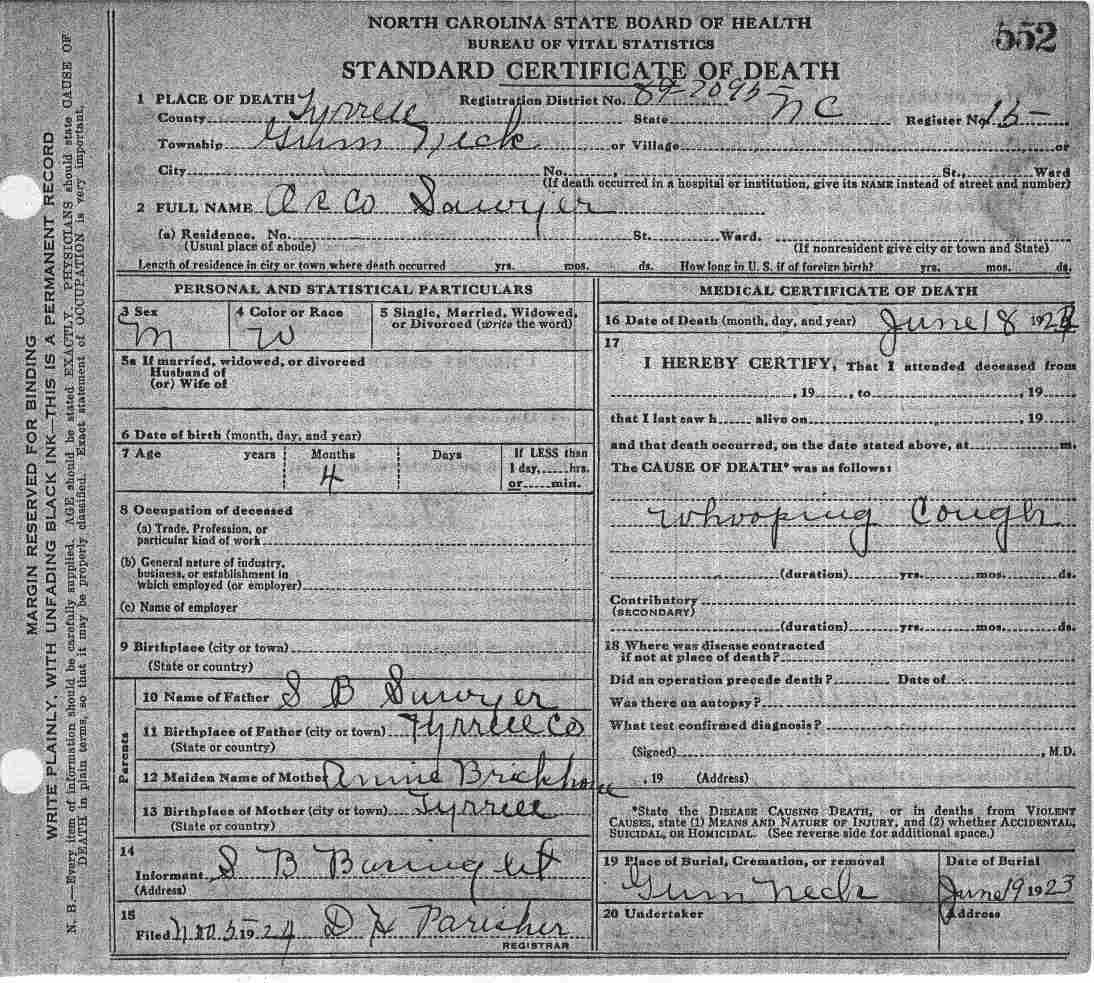 NORTH CAROLINA STATE BOARD OF HEALTH
BUREAU OF VITAL STATISTICS
552
STANDARD CERTIFICATE OF DEATH
1 PLACE OF DEATH Registration District No. 89-2095
County Tyrrell State NC Register No 15-
Township Gum Neck or Village or
City No. , St., Ward
(If death occurred in a hospital or institution, give its NAME instead of street and number)
2 FULL NAME Sawyer
(a) Residence. No. St. Ward.
(Usual place of abode) (If nonresident give city or town and State)
Length of residence in city or town where death occurred yrs. mos. ds. How long in U. S. if of foreign birth? yrs. mos. ds.
PERSONAL AND STATISTICAL PARTICULARS
3 Sex 4 Color or Race 5 Single, Married, Widowed,
or Divorced (write the word)
M W
5a If married, widowed, or divorced
Husband of
(or) Wife of
6 Date of birth (month, day, and year)
7 Age years Months Days If LESS than
1 day, hrs.
4
or min.
8 Occupation of deceased
(a) Trade, Profession, or
particular kind of work
(b) General nature of industry,
business, or establishment in
which employed (or employer)
(c) Name of employer
9 Birthplace (city or town)
(State or country)
Parents
10 Name of Father S B Sawyer
11 Birthplace of Father (city or town) Tyrrell Co
(State or country)
12 Maiden Name of Mother Annie Brickhouse
13 Birthplace of Mother (city or town) Tyrrell
(State or country)
14
Informant S B
(Address)
15
Filed 5 1924 D H Parisher
REGISTRAR
MEDICAL CERTIFICATE OF DEATH
16 Date of Death (month, day, and year) June 18 192
17
I HEREBY CERTIFY, That I attended deceased from
, 19 , to , 19
that I last saw h alive on , 19
and that death occurred, on the date stated above, at m.
The CAUSE OF DEATH* was as follows:
Whooping Cough
(duration) yrs. mos. ds.
Contributory
(SECONDARY)
(duration) yrs. mos. ds.
18 Where was disease contracted
if not at place of death?
Did an operation precede death? Date of
Was there an autopsy?
What test confirmed diagnosis?
(Signed) , M.D.
, 19 (Address)
*State the DISEASE CAUSING DEATH, or in deaths from VIOLENT
CAUSES, state (1) MEANS AND NATURE OF INJURY, and (2) whether ACCIDENTAL,
SUICIDAL, OR HOMICIDAL. (See reverse side for additional space.)
19 Place of Burial, Cremation, or removal Date of Burial
Gum Neck June 19 1923
20 Undertaker Address
MARGIN RESERVED FOR BINDING
WRITE PLAINLY, WITH UNFADING BLACK INK—THIS IS A PERMANENT RECORD
N. B.—Every item of information should be carefully supplied. AGE should be stated EXACTLY. PHYSICIANS should state CAUSE OF
DEATH in plain terms, so that it may be properly classified. Exact statement of OCCUPATION is very important.